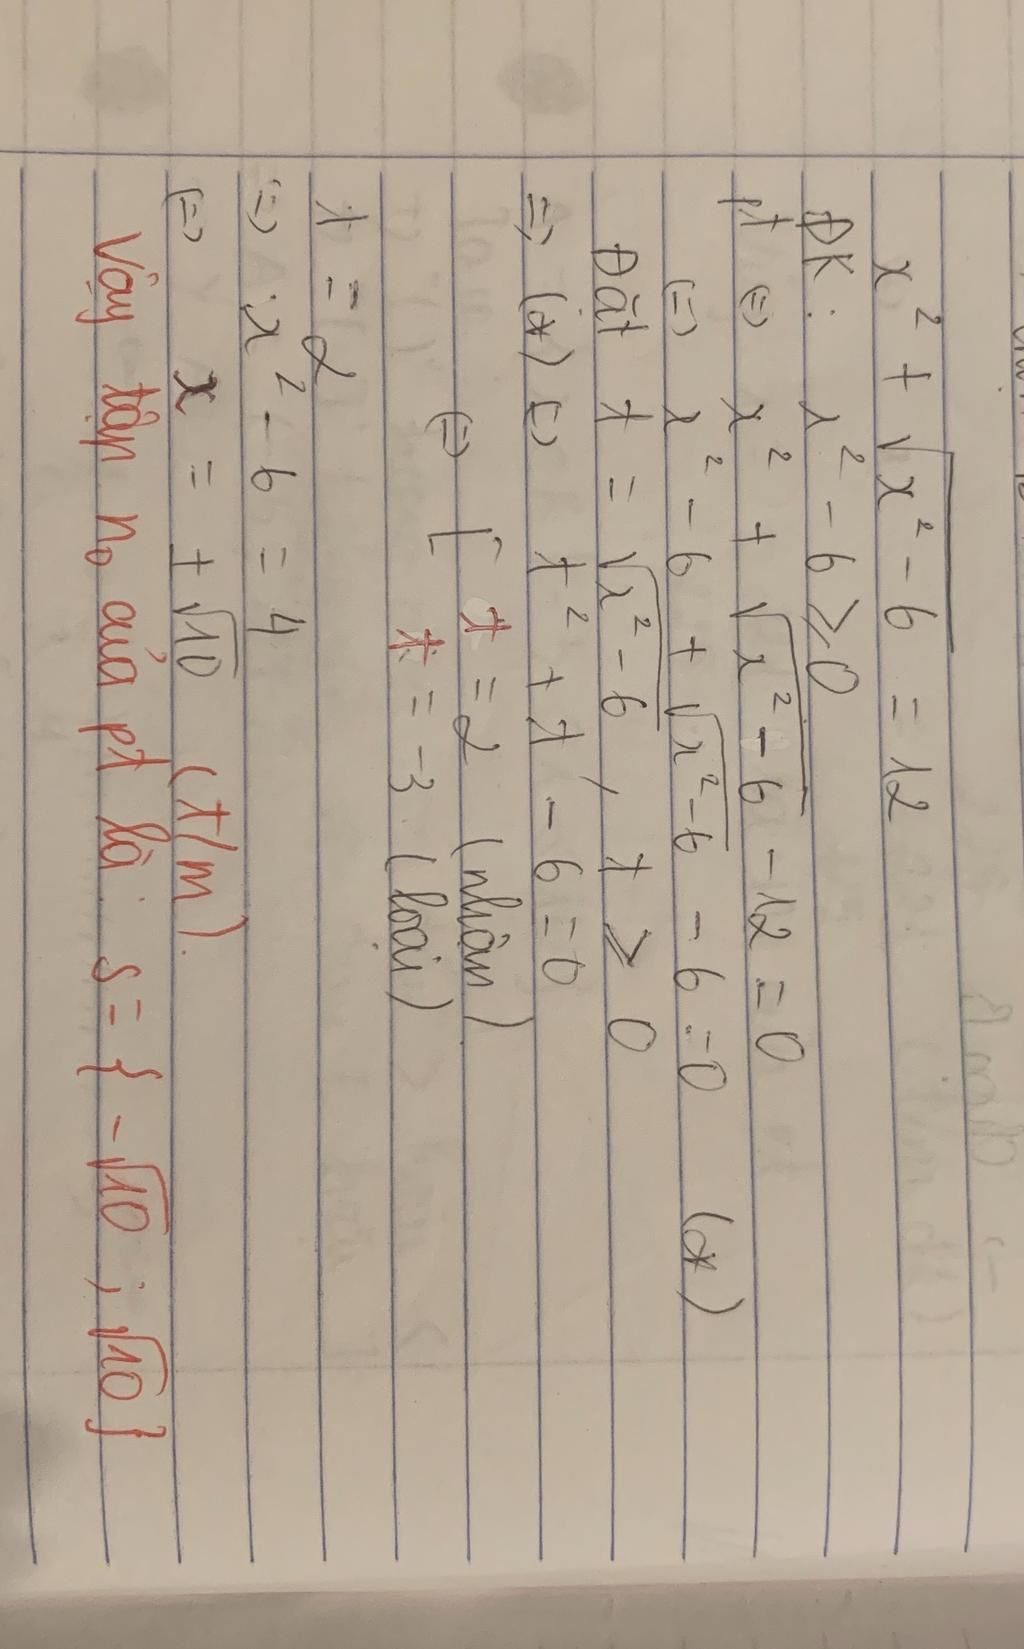 x² + √(x² - 6) = 12
ĐK: x² - 6 ≥ 0
pt ⇔ x² + √(x² - 6) - 12 = 0
⇔ x² - 6 + √(x² - 6) - 6 = 0 (*)
Đặt t = √(x² - 6), t ≥ 0
=> (*) ⇔ t² + t - 6 = 0
⇔ [ t = 2 (nhận)
t = -3 (loại)
t = 2
=> x² - 6 = 4
⇔ x = ±√10 (t/m).
Vậy tập no của pt là: S = { -√10 ; √10 }